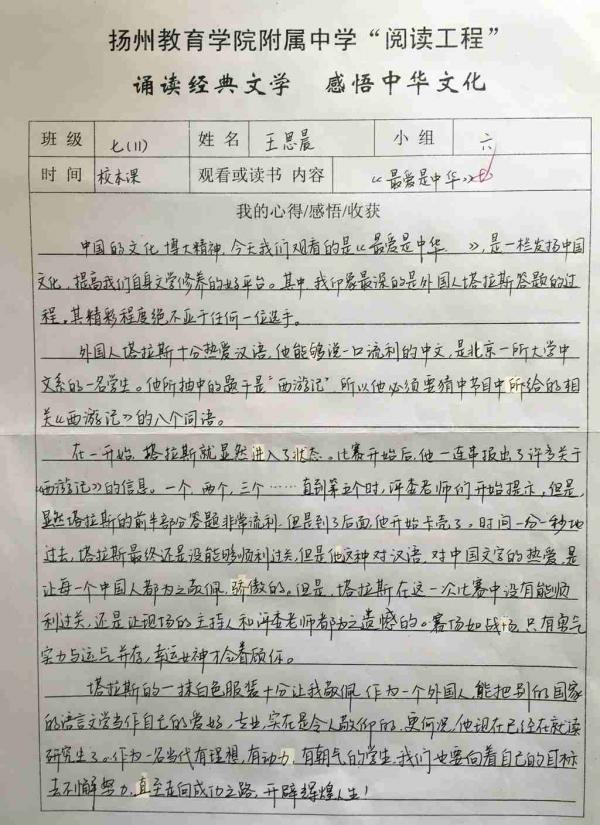 扬州教育学院附属中学“阅读工程”
诵读经典文学 感悟中华文化
班级 七(11) 姓名 王思晨 小组 六
时间 校本课 观看或读书 内容 《最爱是中华》
我的心得/感悟/收获
中国的文化博大精神,今天我们观看的是《最爱是中华》,是一栏发扬中国
文化,提高我们自身文学修养的好平台。其中,我印象最深的是外国人塔拉斯答题的过
程,其精彩程度绝不亚于任何一位选手。
外国人塔拉斯十分热爱汉语,他能够说一口流利的中文,是北京一所大学中
文系的一名学生。他所抽中的题干是“西游记”,所以他必须要猜中节目中所给的相
关《西游记》的八个词语。
在一开始,塔拉斯就显然进入了状态。比赛开始后,他一连串报出了许多关于
《西游记》的信息。一个,两个,三个……直到第五个时,评查老师们开始提示,但是,
显然塔拉斯的前半部分答题非常流利,但是到了后面,他开始卡壳了。时间一分一秒地
过去,塔拉斯最终还是没能够顺利过关,但是他这种对汉语,对中国文字的热爱,是
让每一个中国人都为之敬佩,骄傲的。但是,塔拉斯在这一次比赛中没有能顺
利过关,还是让现场的主持人和评查老师都为之遗憾的。赛场如战场,只有勇气
实力与运气并存,幸运女神才会着顾你。
塔拉斯的一抹白色服装十分让我敬佩,作为一个外国人,能把别的国家
的语言文学当作自己的爱好,专业,实在是令人敬仰的,更何况,他现在已经在就读
研究生了。作为一名当代有理想,有动力,有朝气的学生,我们也要向着自己的目标
去不懈努力,直至走向成功之路,开辟辉煌人生!